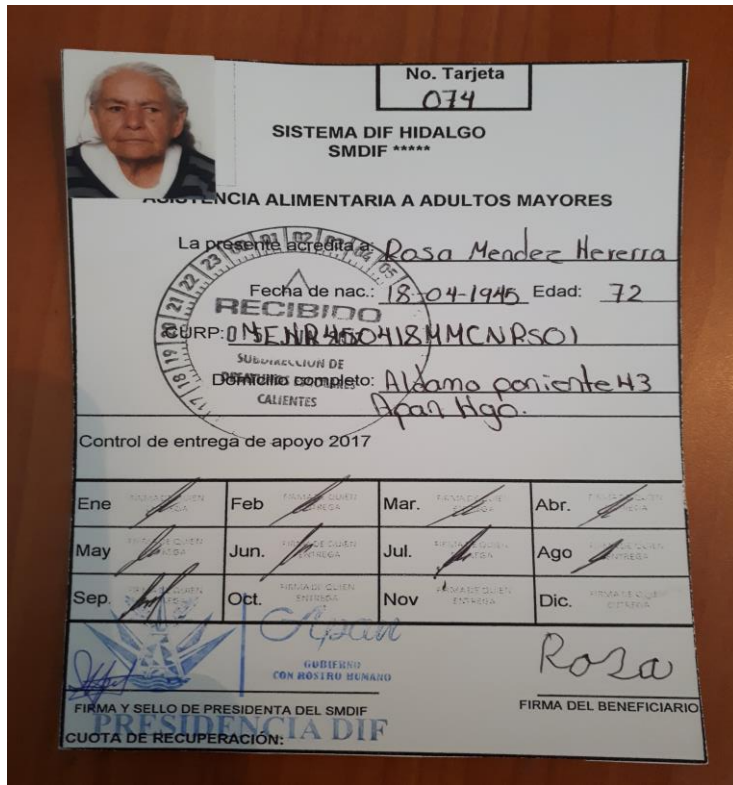 No. Tarjeta
074
SISTEMA DIF HIDALGO
SMDIF *****
ASISTENCIA ALIMENTARIA A ADULTOS MAYORES
La presente acredita a: Rosa Mendez Hererra
Fecha de nac.: 18-04-1945 Edad: 72
RECIBIDO
CURP: MENR450418MMCNRS01
SUBDIRECCIÓN DE
Domicilio completo: Aldama poniente 43
CALIENTES
Apan Hgo.
Control de entrega de apoyo 2017
Ene FIRMA DE QUIEN ENTREGA Feb FIRMA DE QUIEN ENTREGA Mar. FIRMA DE QUIEN ENTREGA Abr. FIRMA DE QUIEN ENTREGA
May FIRMA DE QUIEN ENTREGA Jun. FIRMA DE QUIEN ENTREGA Jul. FIRMA DE QUIEN ENTREGA Ago FIRMA DE QUIEN ENTREGA
Sep. FIRMA DE QUIEN ENTREGA Oct. FIRMA DE QUIEN ENTREGA Nov FIRMA DE QUIEN ENTREGA Dic. FIRMA DE QUIEN ENTREGA
Apan
GOBIERNO
CON ROSTRO HUMANO
Rosa
FIRMA Y SELLO DE PRESIDENTA DEL SMDIF FIRMA DEL BENEFICIARIO
PRESIDENCIA DIF
CUOTA DE RECUPERACIÓN: